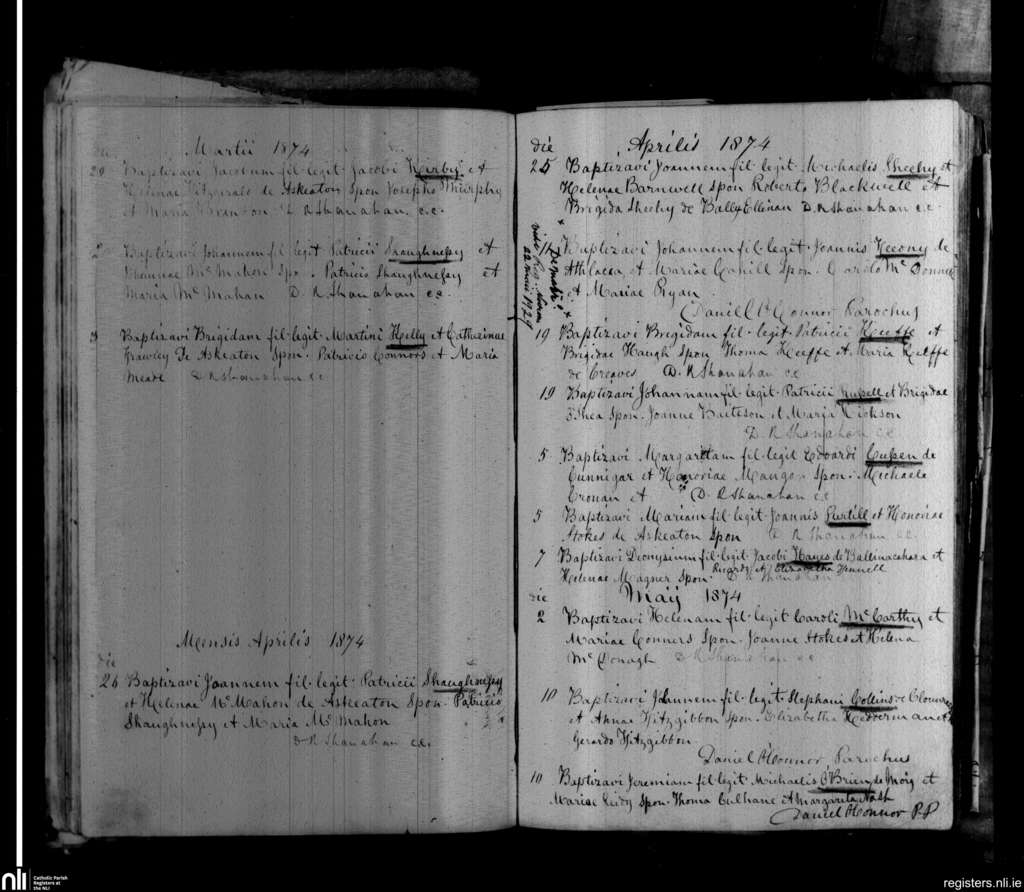 die
Martii 1874
29 Baptizavi Jacobum fil legit Jacobi Kirby et
Helenae Fitzgerald de Askeaton Spon Josepho Murphy
et Maria D R Shanahan c.c.
2 Baptizavi Johannem fil legit Patricii Shaughnessy et
Mc Mahon Spon. Patricio Shaughnessy et
Maria Mc Mahan D. R Shanahan c.c.
3 Baptizavi Brigidam fil-legit-Martini Kelly et Catherinae
Frawley de Askeaton Spon. Patricio Connors et Maria
Meade D R Shanahan c.c.
Mensis Aprilis 1874
die
26 Baptizavi Joannem fil-legit-Patricii Shaughnessy
et Helenae Mc Mahon de Askeaton Spon-Patricio
Shaughnessy et Maria Mc Mahon
D R Shanahan c.c.
die Aprilis 1874
25 Baptizavi Joannem fil legit Michaelis Sheehy et
Helenae Barnwell Spon Roberto Blackwell et
Brigida Sheehy de BallyEllinan D. R Shanahan c.c.
Baptizavi Johannem fil-legit-Joannis Keeony de
Athlacca, et Mariae Cahill Spon. Carolo Mc Donnell
et Mariae Ryan
Daniel O'Connor Parochus
vide
22 1929
19 Baptizavi Brigidam fil-legit-Patricii Keeffe et
Brigidae Haugh Spon Thoma Keeffe et Maria Keeffe
de Creaves D. R Shanahan c.c.
19 Baptizavi Johannam fil-legit-Patricii Russell et Brigidae
O'Shea Spon-Joanne Batteson et Maria Hickson
D. R Shanahan c.c.
5 Baptizavi Margaritam fil-legit Edoardi Cussen de
Cunnigar et Honoriae Mangan Spon-Michaele
Cronan et D. R Shanahan c.c.
5 Baptizavi Mariam fil-legit-Joannis Purtill et Honoriae
Stokes de Askeaton Spon D R Shanahan c.c.
7 Baptizavi Dionysium fil-legit-Jacobi Hayes de Ballinacahara et
Ricardo et Elizabetha Hennell
Helenae Magner Spon. D R Shanahan
die Maij 1874
2 Baptizavi Helenam fil-legit Caroli McCarthy et
Mariae Conners Spon-Joanne Stokes et Helena
Mc Donagh D R Shanahan c.c.
10 Baptizavi Johannem fil-legit-Stephani Collins de
et Annae Fitzgibbon Spon-Elizabetha Hedderman et
Gerardo Fitzgibbon
Daniel O'Connor Parochus
10 Baptizavi Jeremiam fil-legit-Michaelis O'Brien de Moig et
Mariae Spon-Thoma Culhane et Margarita Nash
Daniel O'Connor P.P
nli
Catholic Parish
Registers at
the NLI
registers.nli.ie